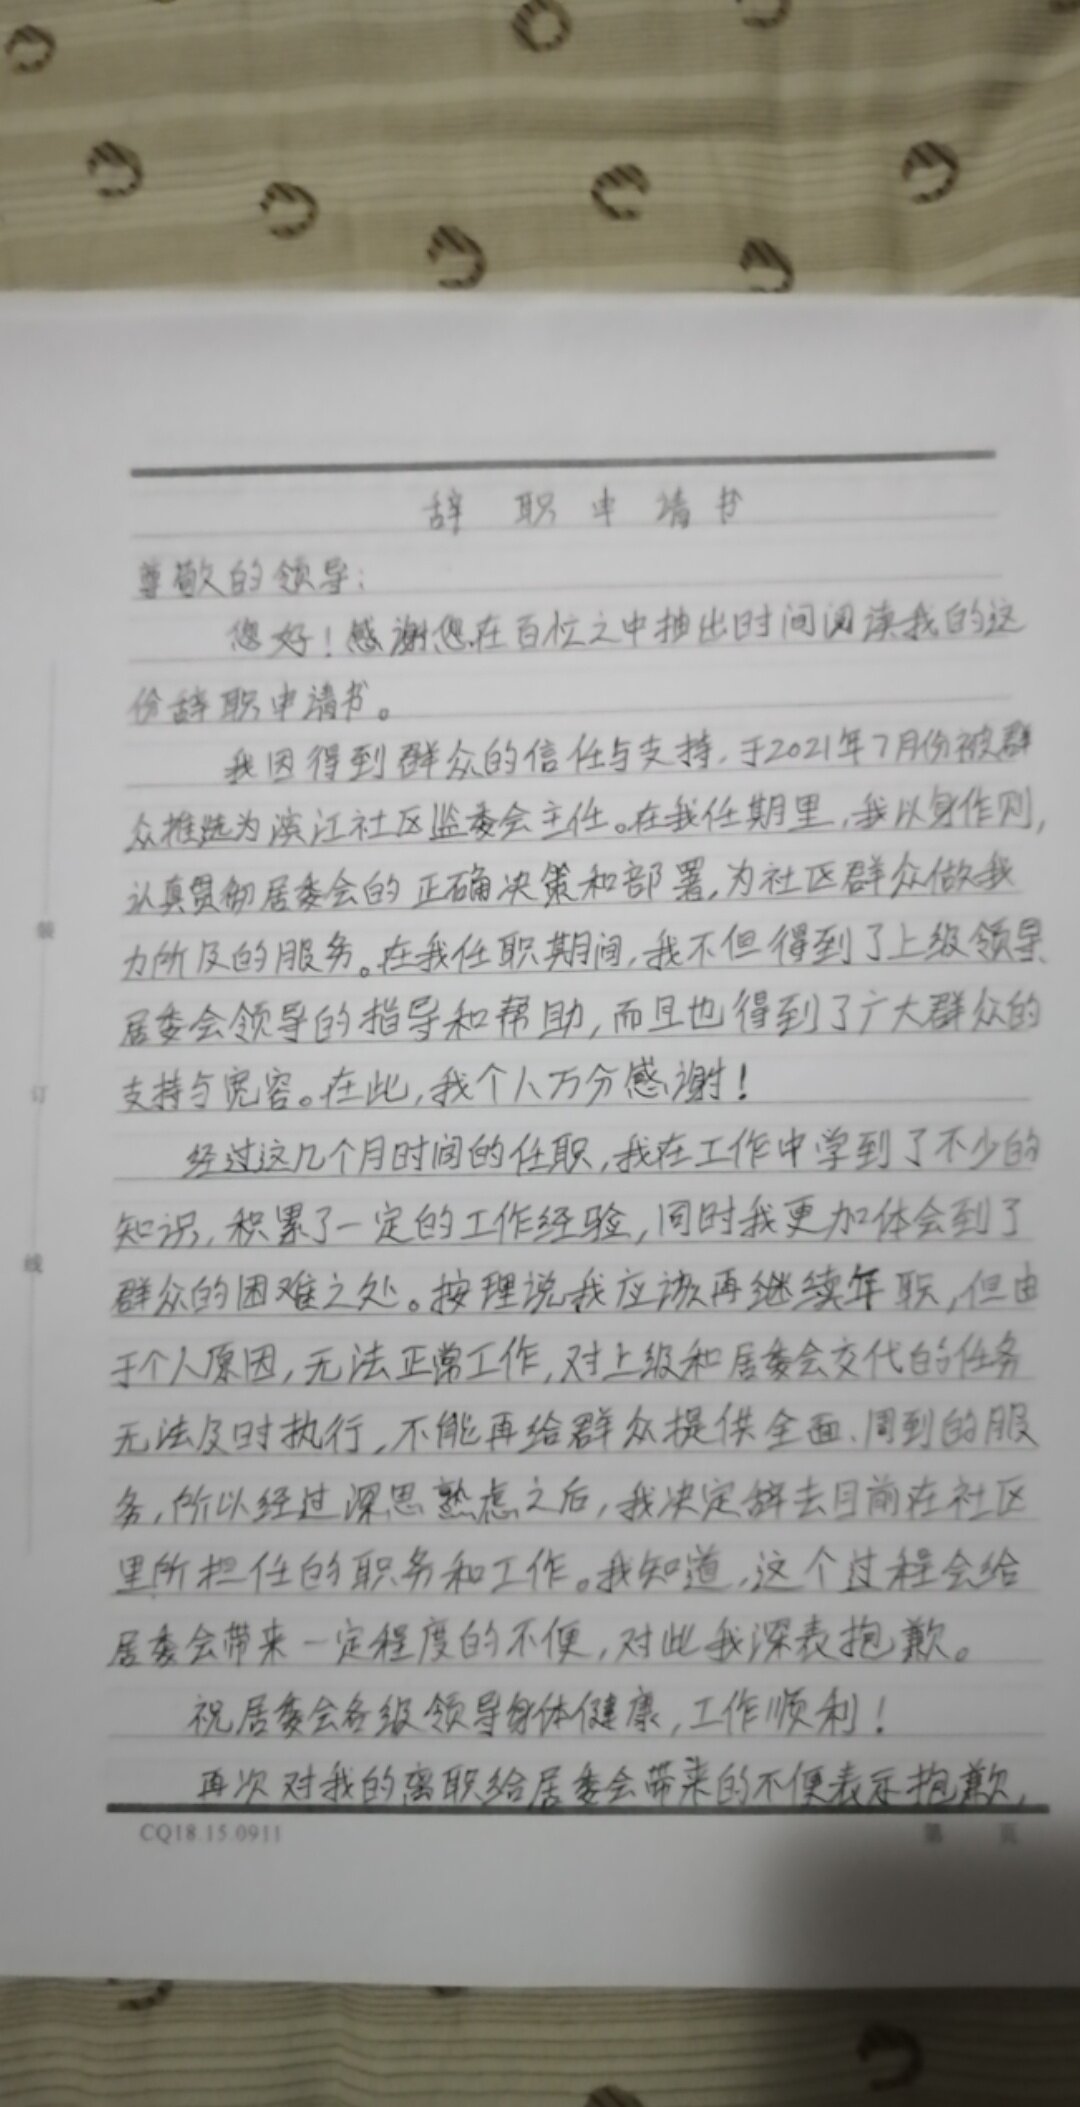 辞职申请书
尊敬的领导：
您好！感谢您在百忙之中抽出时间阅读我的这
份辞职申请书。
我因得到群众的信任与支持，于2021年7月份被群
众推选为滨江社区监委会主任。在我任期里，我以身作则，
认真贯彻居委会的正确决策和部署，为社区群众做我
力所及的服务。在我任职期间，我不但得到了上级领导、
居委会领导的指导和帮助，而且也得到了广大群众的
支持与宽容。在此，我个人万分感谢！
经过这几个月时间的任职，我在工作中学到了不少的
知识，积累了一定的工作经验，同时我更加体会到了
群众的困难之处。按理说我应该再继续年职，但由
于个人原因，无法正常工作，对上级和居委会交代的任务
无法及时执行，不能再给群众提供全面、周到的服
务，所以经过深思熟虑之后，我决定辞去目前在社区
里所担任的职务和工作。我知道，这个过程会给
居委会带来一定程度的不便，对此我深表抱歉。
祝居委会各级领导身体健康，工作顺利！
再次对我的离职给居委会带来的不便表示抱歉，
CQ18.15.0911
第 页
装
订
线